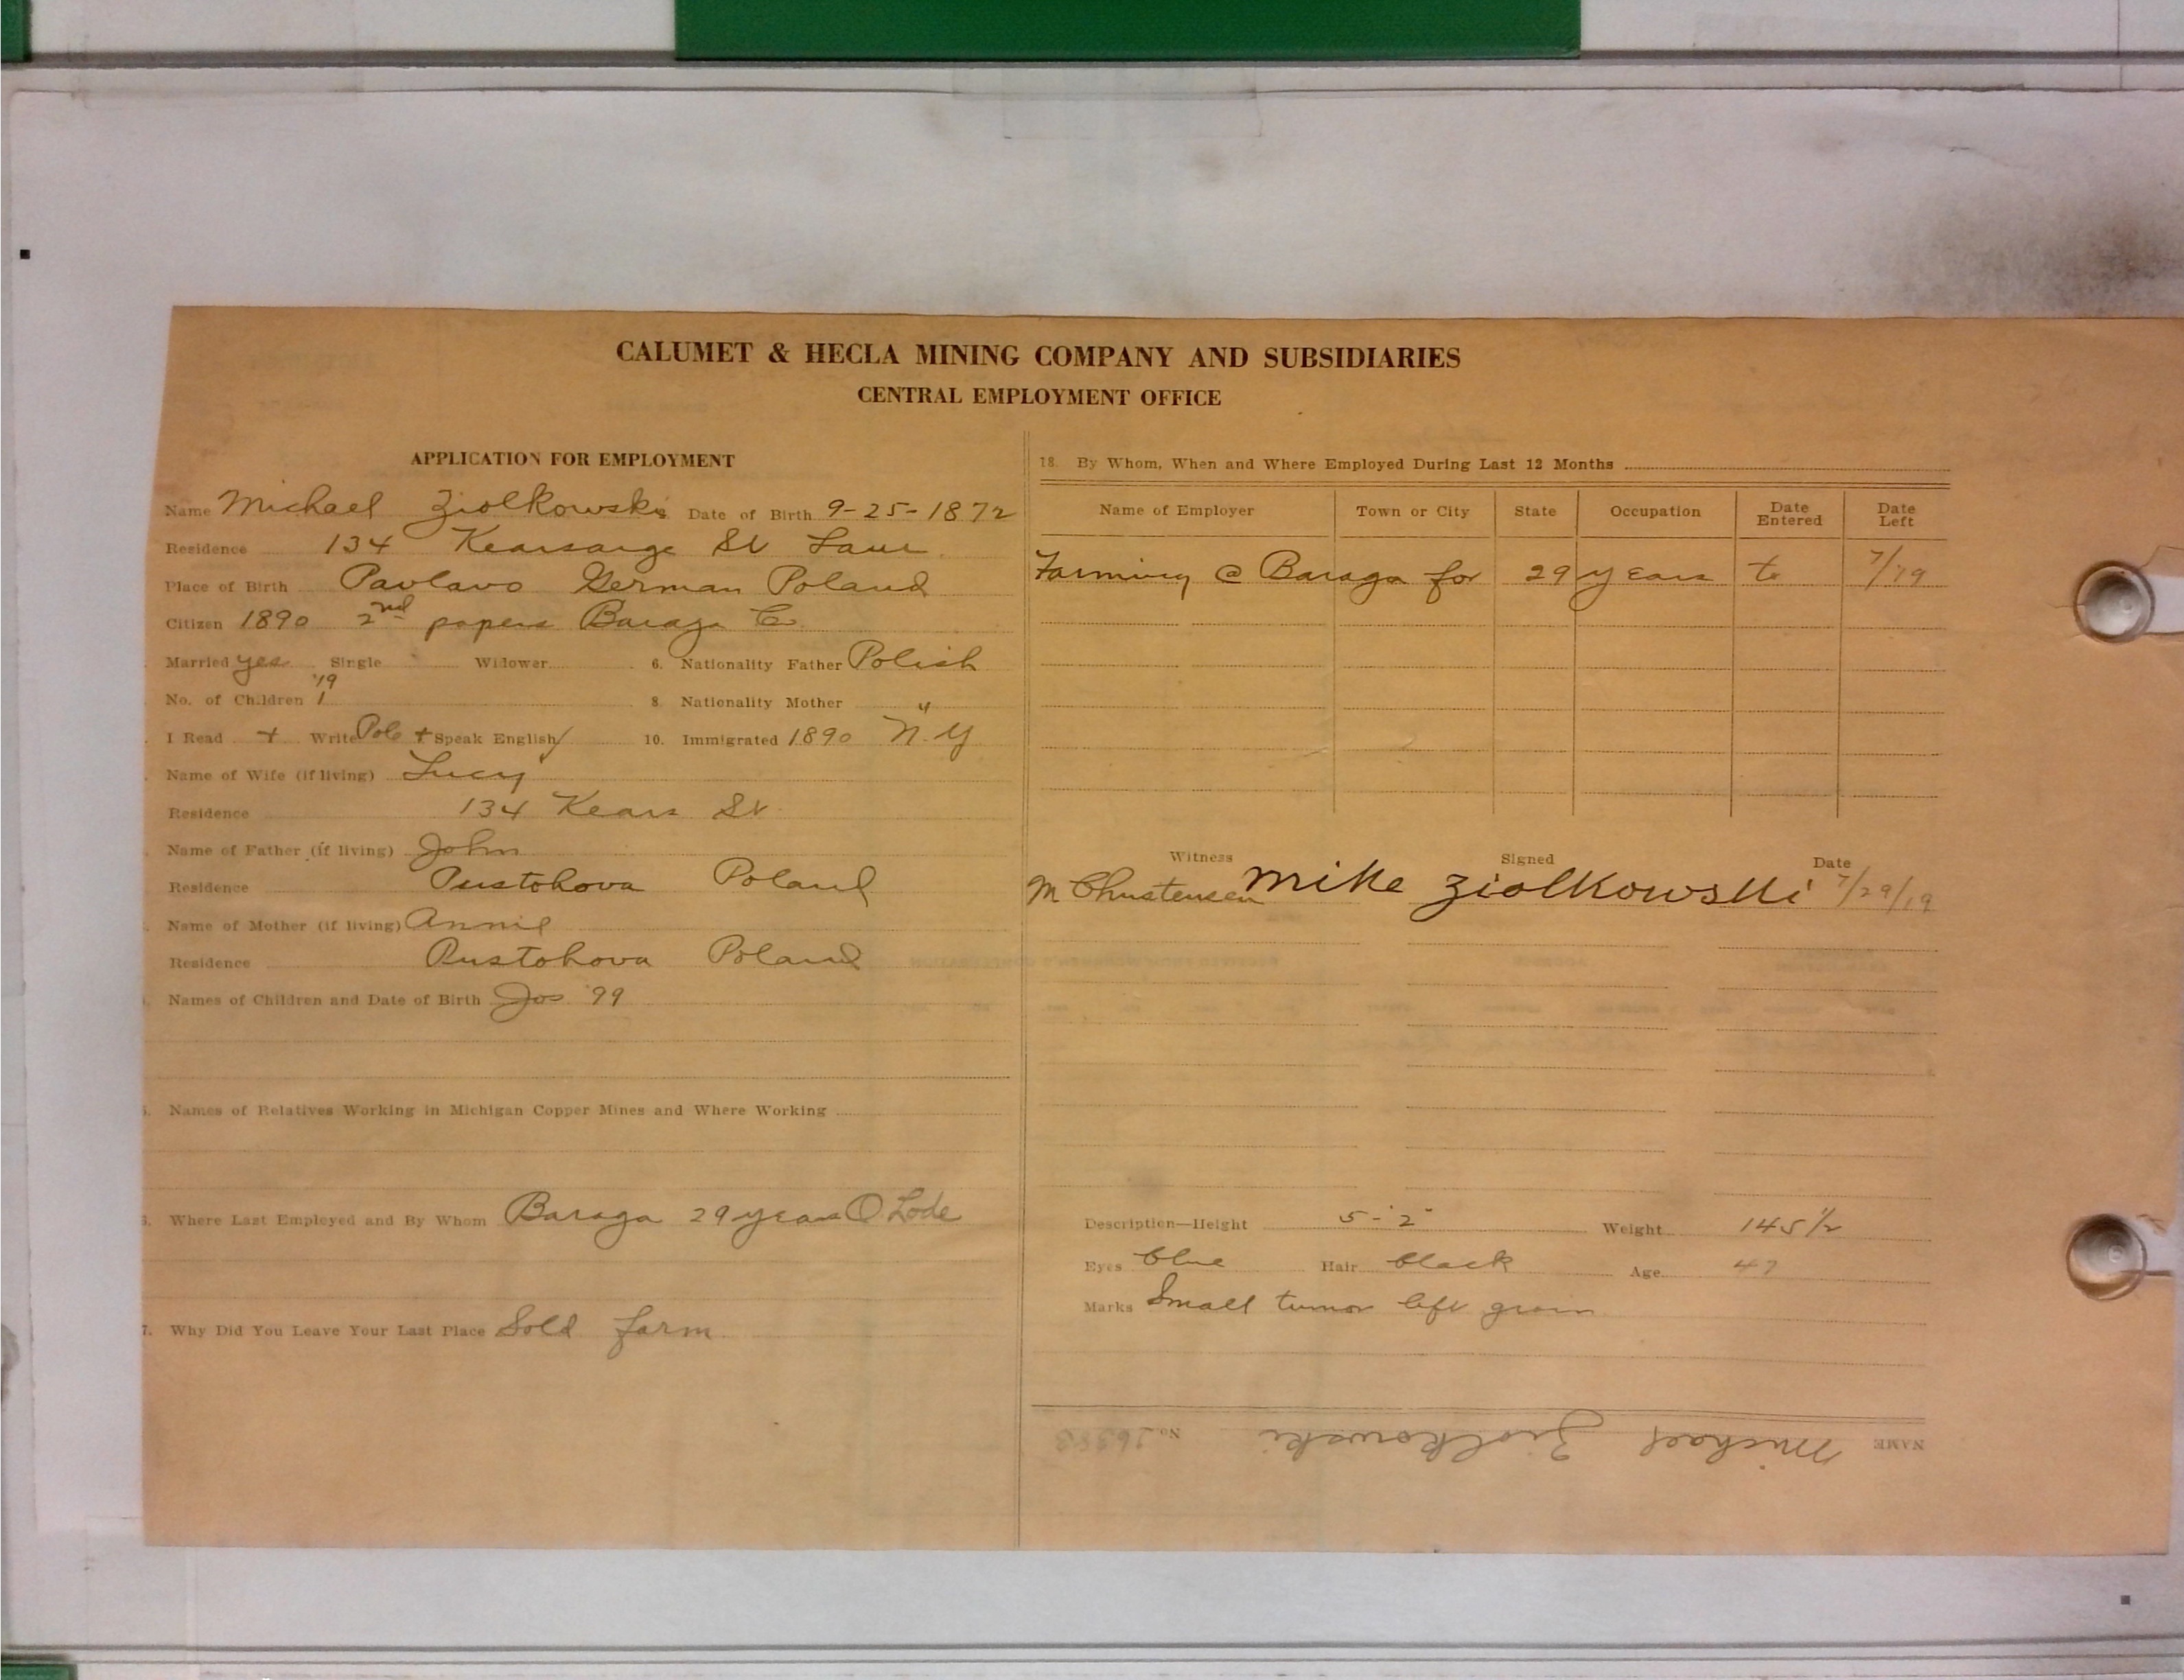 CALUMET & HECLA MINING COMPANY AND SUBSIDIARIES
CENTRAL EMPLOYMENT OFFICE
APPLICATION FOR EMPLOYMENT
Name Michael Ziolkowski Date of Birth 9-25-1872
Residence 134 Kearsarge St Laur
Place of Birth Pavlavo German Poland
Citizen 1890 2nd papers Baraga Co
Married yes Single Widower 6. Nationality Father Polish
'19
No. of Children 1 8. Nationality Mother "
I Read + Write Pole + Speak English / 10. Immigrated 1890 N.Y
Name of Wife (if living) Lucy
Residence 134 Kears St
Name of Father (if living) John
Residence Pustohova Poland
Name of Mother (if living) Annie
Residence Pustohova Poland
Names of Children and Date of Birth Jos '99
5. Names of Relatives Working in Michigan Copper Mines and Where Working
6. Where Last Employed and By Whom Baraga 29 years O Lode
7. Why Did You Leave Your Last Place Sold farm
18. By Whom, When and Where Employed During Last 12 Months
Name of Employer Town or City State Occupation Date Entered Date Left
Farming @ Baraga for 29 years to 7/19
Witness Signed Date
M Christensen Mike Ziolkowski 7/29/19
Description—Height 5-'2" Weight 145 1/2
Eyes blue Hair black Age 47
Marks Small tumor left groin
NAME Michael Ziolkowski No.